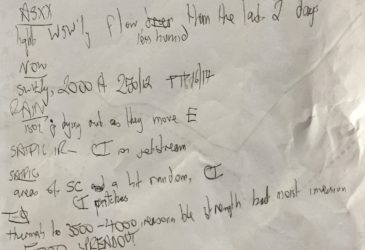 ASXX
light WSW'ly flow than the last 2 days
less humid
NOW
2000 ft 250/12
RAIN
isol & dying out as they move E
SATPIC IR - CI in jetstream
SATPIC
areas of SC a bit random, CI
CI patches
thermals to 3500-4000, reasonable strength but moist inversion
SPREADOUT